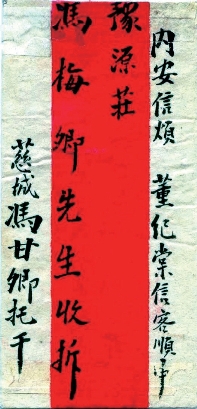 内安信煩 董纪棠信客順帶
豫源莊
馮梅卿先生收拆
慈城馮甘卿托干